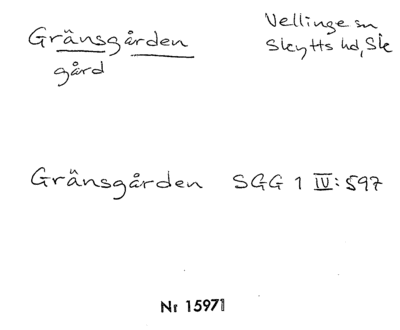 Gränsgården
gård
Vellinge sn
Skytts hd, Sk
Gränsgården SGG 1 IV: 597
Nr 15971